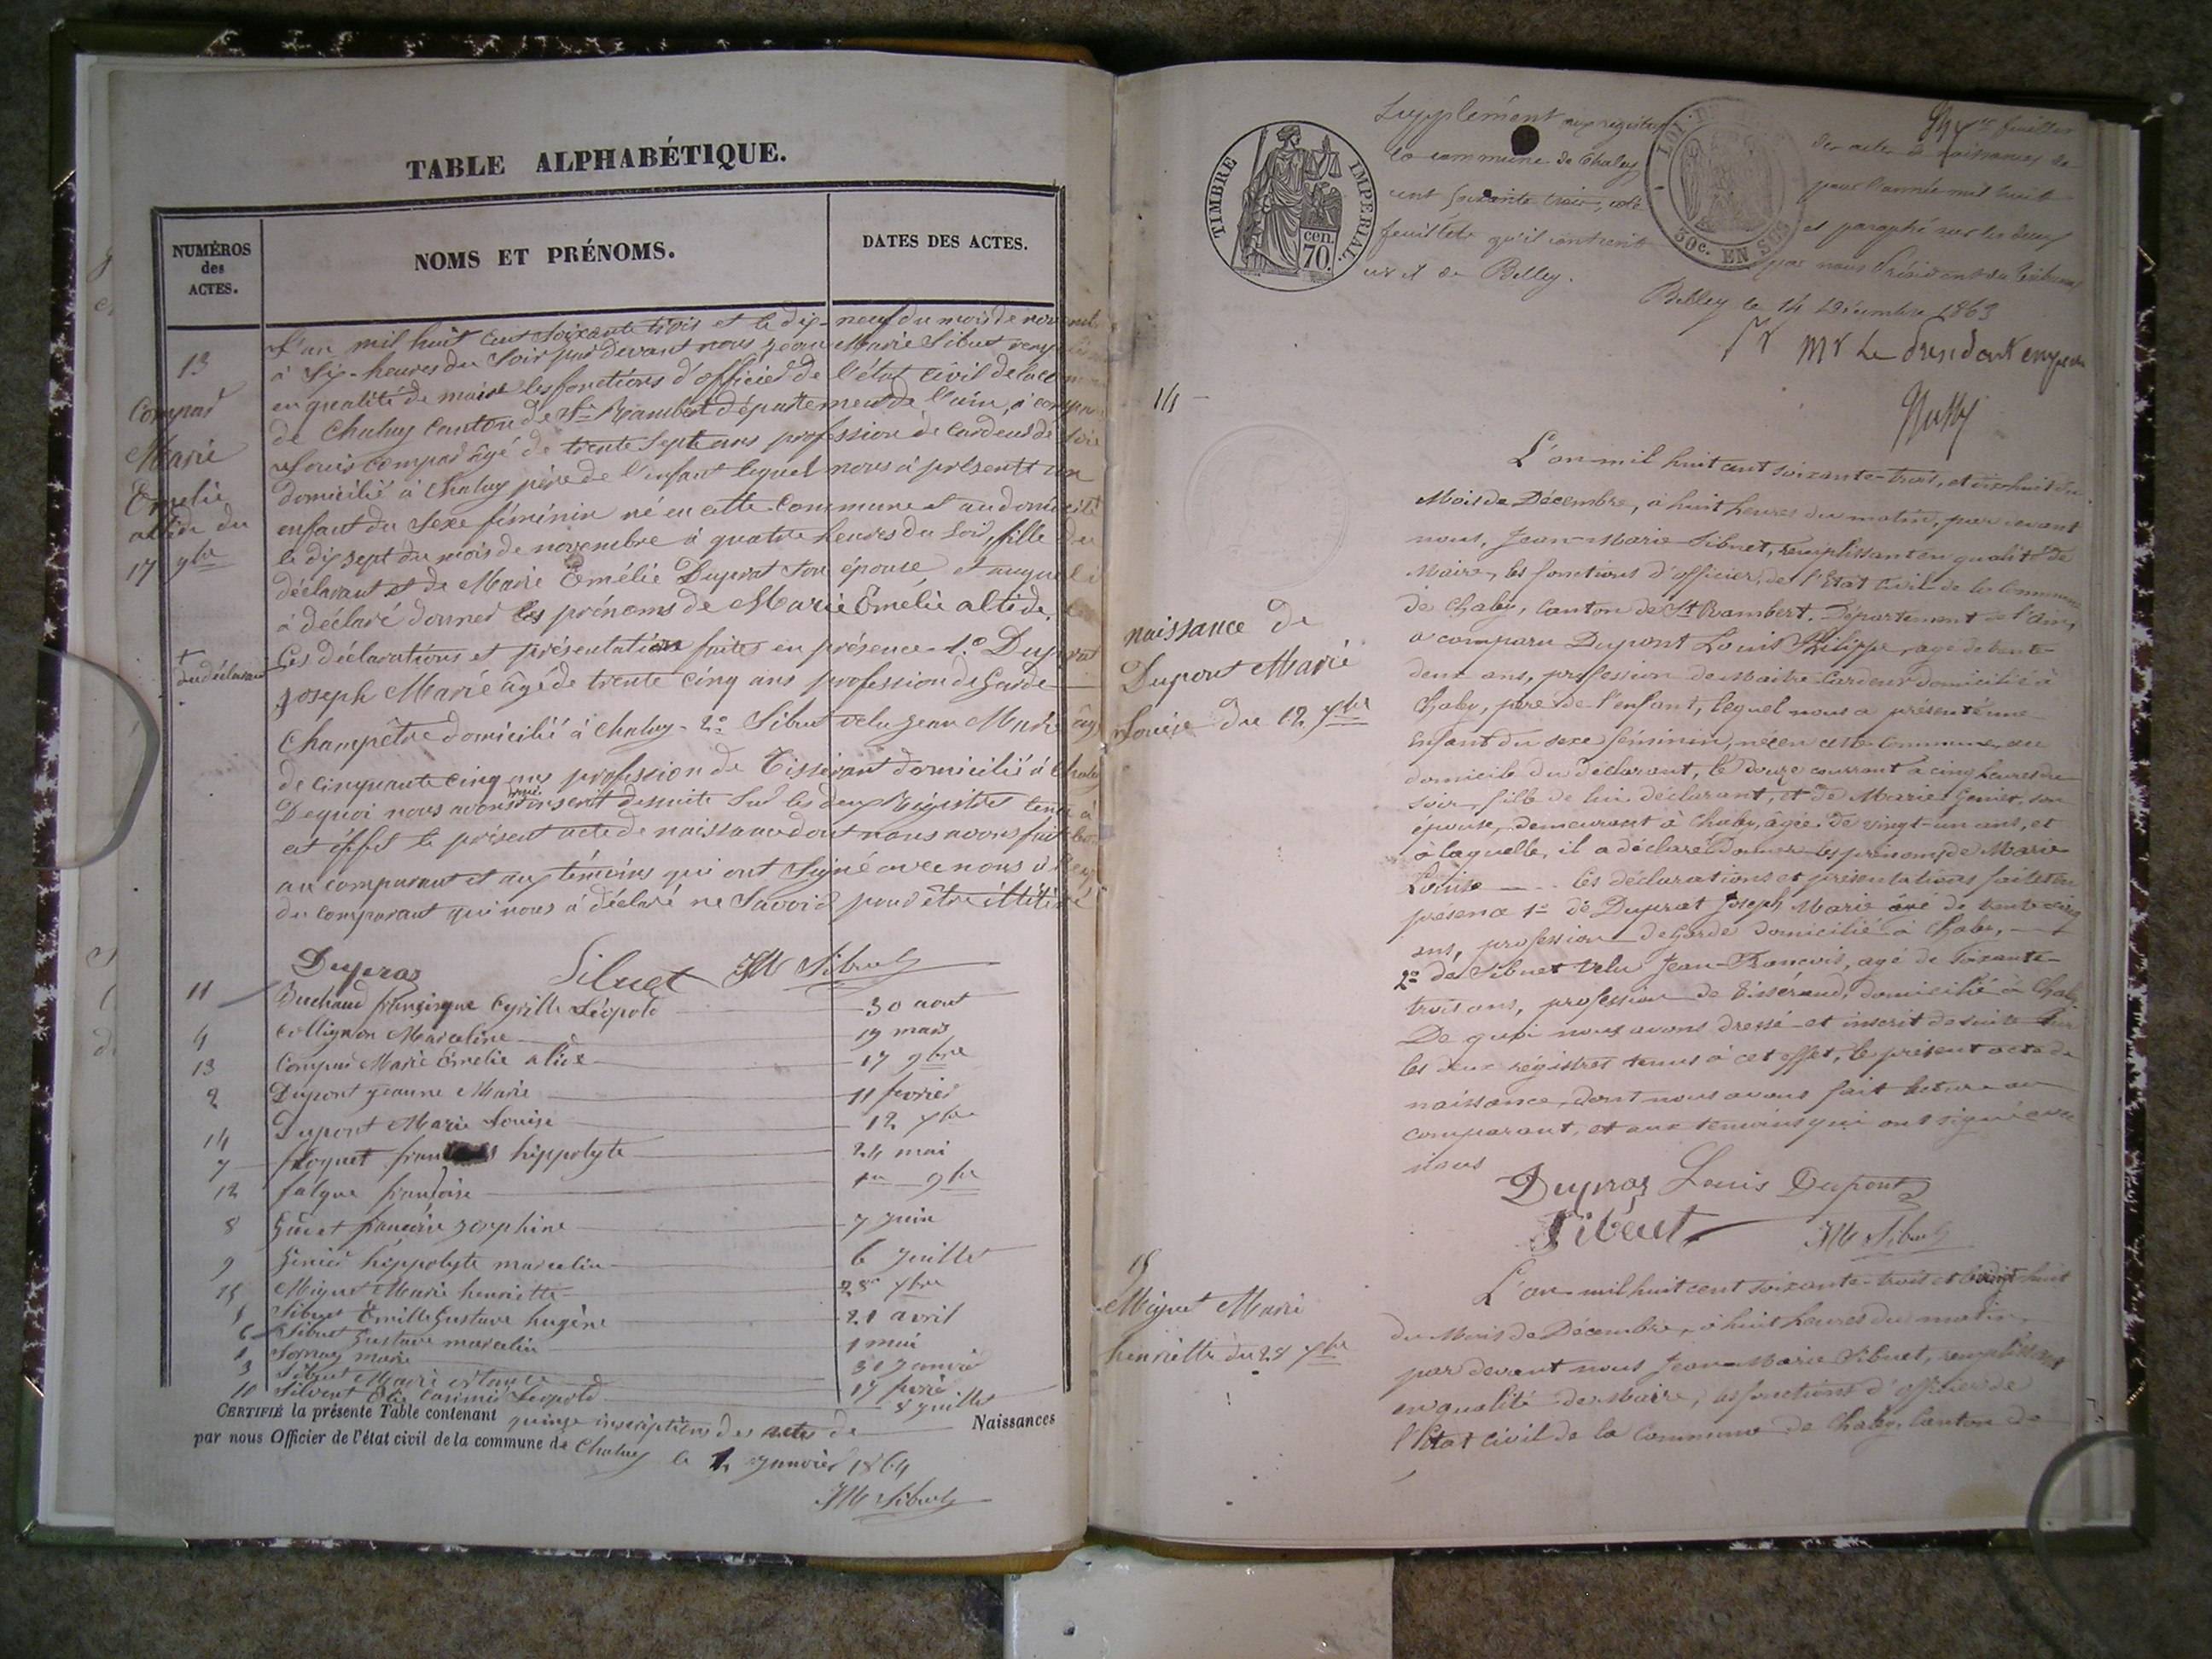 TABLE ALPHABÉTIQUE.
NUMÉROS
des
ACTES.
NOMS ET PRÉNOMS.
DATES DES ACTES.
13
Compar
Marie
Emelie
altide du
17 9bre
L'an mil huit cent soixante trois et le dix-neuf du mois de novemb
à six heures du soir par devant nous Jean Marie Sibuet remplis
en qualité de maire les fonctions d'officier de l'état civil de la comm
de Chaley canton de St Rambert département de l'ain, à compa
Louis compar âgé de trente sept ans profession de Cardeur de soie
domicilié à Chaley père de l'enfant lequel nous à présenté un
enfant du sexe féminin né en cette commune et au domicile
le dix sept du mois de novembre à quatre heures du soir, fille du
déclarant et de Marie Emélie Duprat son épouse, et auquel i
à déclaré donner les prénoms de Marie Emélie altide
+
du déclarant
Les déclarations et présentation faites en présence 1.o Duprat
Joseph Marie âgé de trente cinq ans profession de Garde
Champêtre domicilié à Chaley - 2o Sibuet velu Jean Marie âgé
de cinquante cinq ans profession de Tisserant domicilié à Chaley
De quoi nous avons inscrit desuite sur les deux Régistres tenu à
cet effet le présent acte de naissance dont nous avons fait lec
au comparant et aux témoins qui ont signé avec nous
du comparant qui nous à déclaré ne savoir pour être illitéré
Dupraz Sibuet JM Sibuet
11 Buchaud françisque Cyrille Léopold 30 aout
4 Collignon Marceline 19 mars
13 Compar Marie Emelie alide 17 9bre
2 Dupont Jeanne Marie 11 fevrier
14 Dupont Marie Louise 12 xbre
7 floquet hippolyte 24 mai
12 falque françoise 1er 9bre
8 Guiet Josephine 7 Juin
9 Genier hippolyte marcelin 6 Juillet
15 Miguet Marie henriette 28 xbre
5 Sibuet Emille Gustave hugène 21 avril
6 Sibuet Gustave marcelin 1 mai
1 marie 31 Janvier
3 Sibuet Marie 17 fevrier
10 Silvent Elie Casimir Léopold 8 Juillet
CERTIFIÉ la présente Table contenant quinze inscriptions des actes de Naissances
par nous Officier de l'état civil de la commune de Chaley le 1er Janvier 1864
JM Sibuet
TIMBRE IMPERIAL.
cen.
70.
30c. EN SUS
Supplément aux registres des actes de naissances de
la commune de Chaley pour l'année mil huit
cent soixante trois, coté et paraphé sur les deux
feuillets qu'il contient par nous Président du Tribunal
de Belley.
Belley le 14 Décembre 1863
14
naissance de
Dupont Marie
Louise du 12 xbre
L'an mil huit cent soixante-trois, et dix huit du
Mois de Décembre, à huit heures du matin, par devant
nous, Jean-Marie Sibuet, remplissant en qualité de
Maire, les fonctions d'officier, de l'Etat Civil de la Commune
de Chaley, Canton de St Rambert, Département de l'Ain,
a comparu Dupont Louis Philippe, agé de trente
deux ans, profession de Maitre Cardeur domicilié à
Chaley, père de l'enfant, lequel nous a présenté une
Enfant du sexe féminin, née en cette Commune, au
domicile du déclarant, le Douze courrant à cinq heures du
soir, fille de lui déclarant, et de Marie Genier, son
épouse, demeurant à Chaley, âgée de vingt-un ans, et
à laquelle, il a déclaré donner les prénoms de Marie
Louise les déclarations et présentations faites en
présence 1o de Duprat Joseph Marie âgé de trente cinq
ans, profession de Garde domicilié à Chaley,
2o de Sibuet Velu Jean-François, agé de soixante-
trois ans, profession de Tisserand, domicilié à Chaley
De quoi nous avons dressé et inscrit de suite sur
les deux régistres tenus à cet effet, le présent acte de
naissance, dont nous avons fait lecture au
comparant, et aux temoins qui ont signé avec
nous
Dupraz Louis Dupont
Sibuet JM Sibuet
15
Miguet Marie
henriette du 28 xbre
L'an mil huit cent soixante-trois et le vingt huit
du Mois de Décembre, à huit heures du matin,
par devant nous Jean-Marie Sibuet, remplissant
en qualité de Maire, les fonctions d'officier de
l'Etat civil de la Commune de Chaley, Canton de